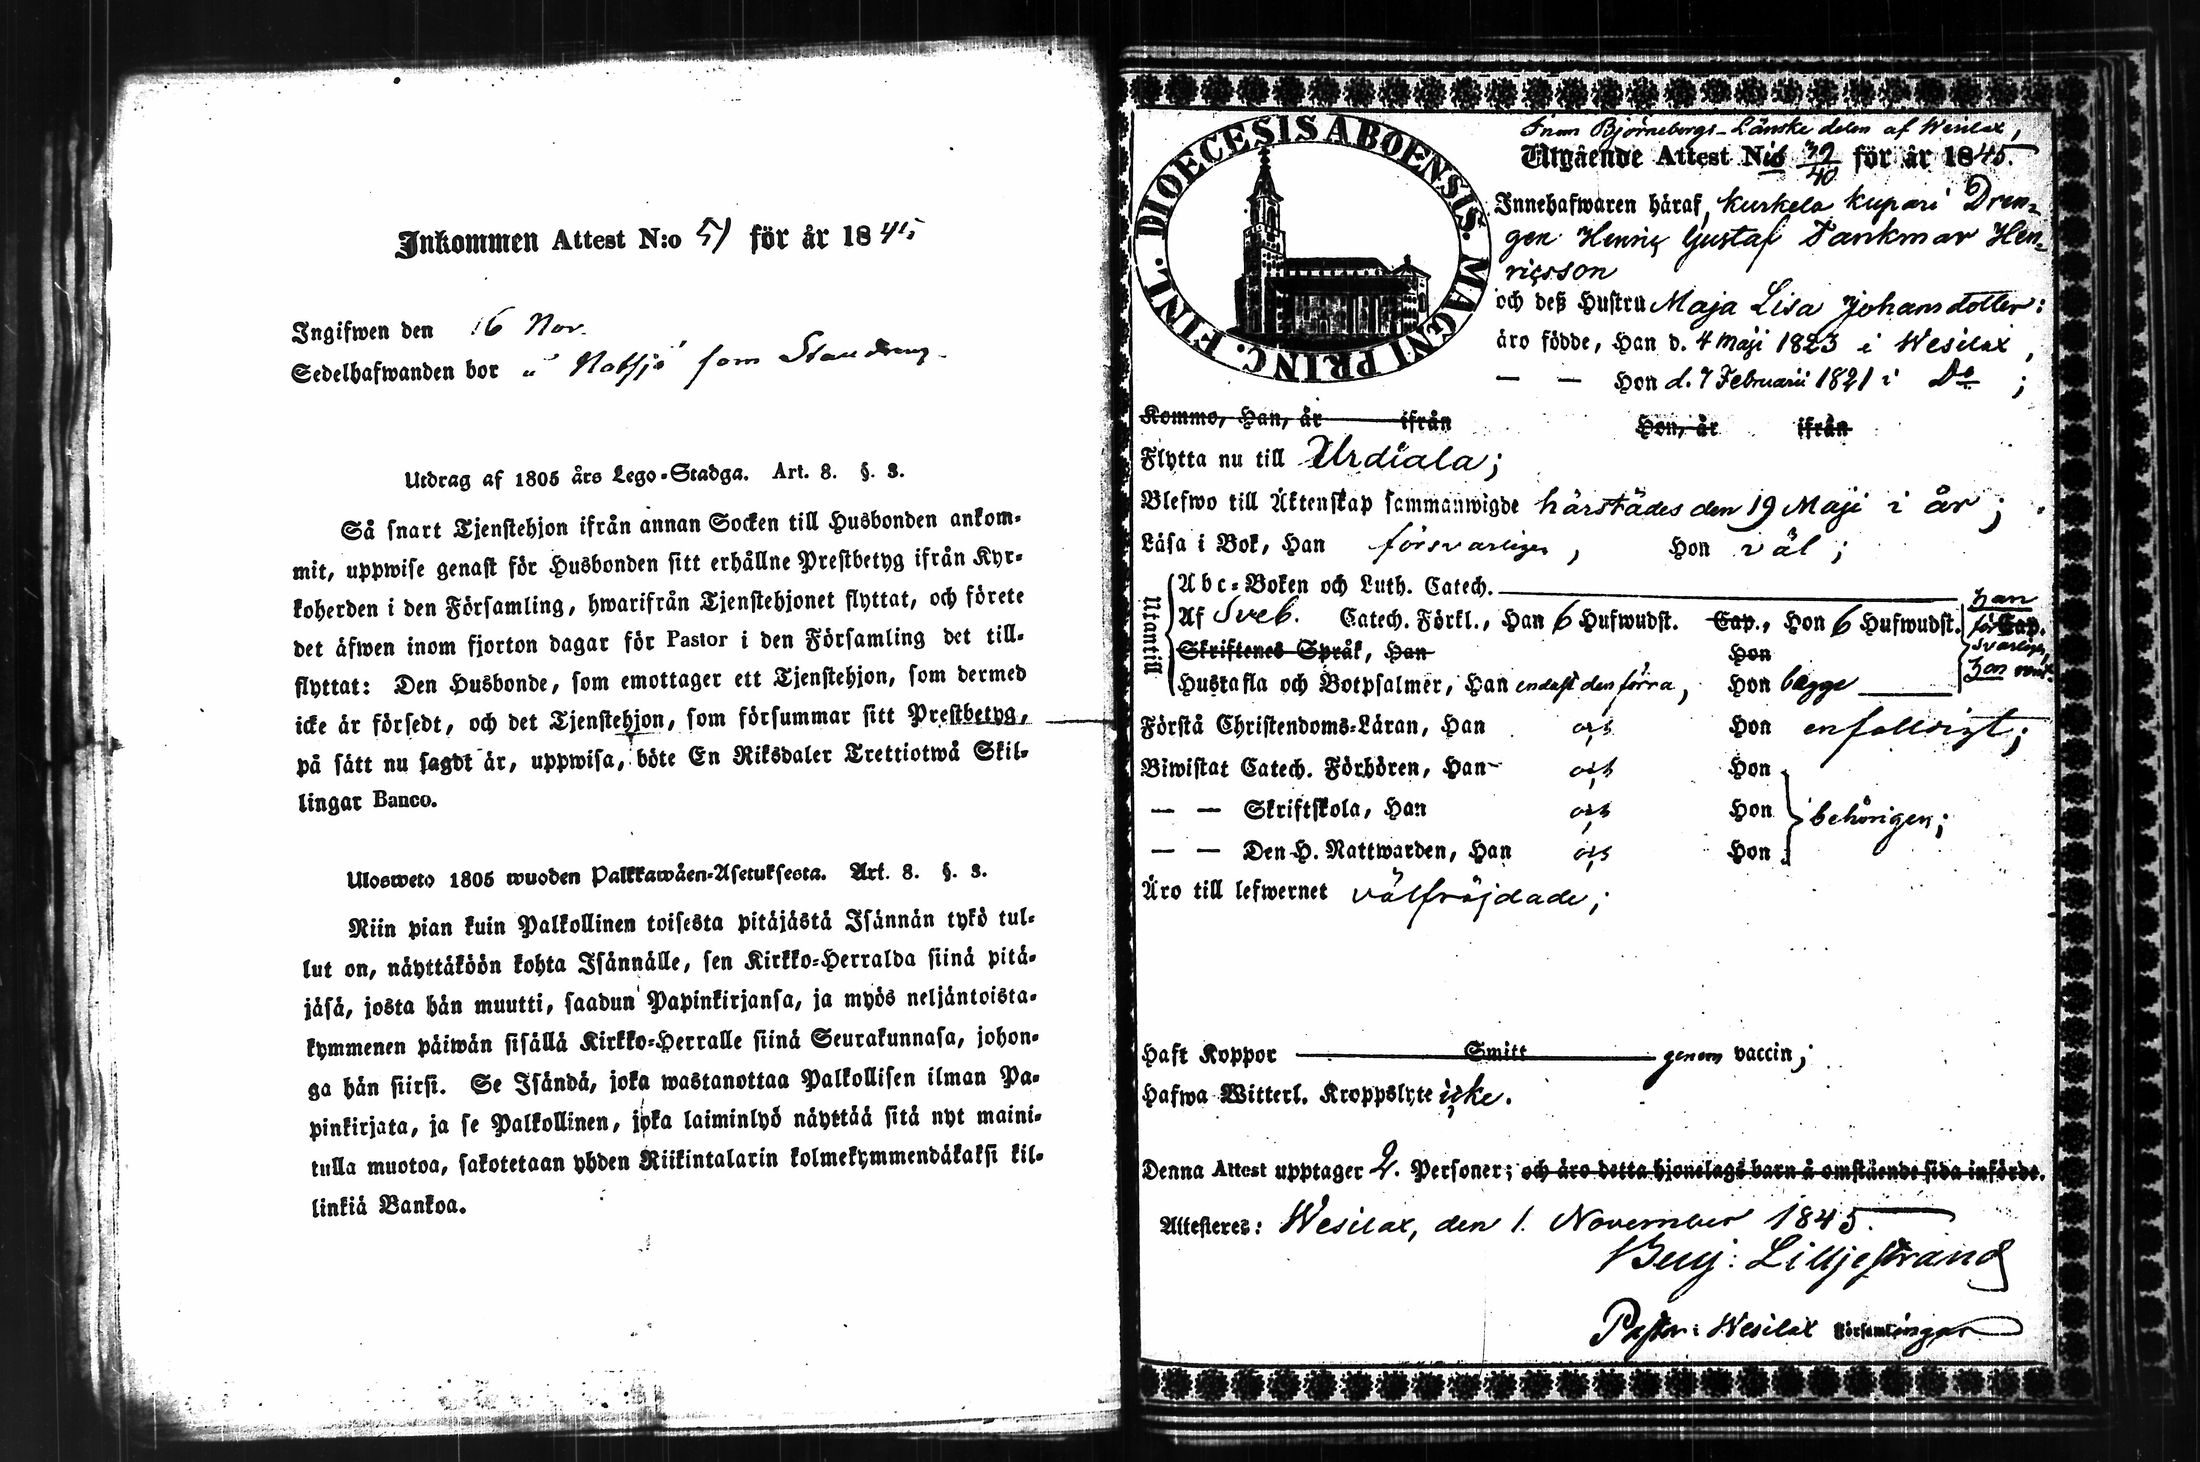 Inkommen Attest N:o 51 för år 1845
Ingifwen den 16 Nov.
Sedelhafwanden bor å Notsjö som Staudreng.
Utdrag af 1805 års Lego-Stadga. Art. 8. §. 3.
Så snart Tjenstehjon ifrån annan Socken till Husbonden ankom-
mit, uppwise genast för Husbonden sitt erhållne Prestbetyg ifrån Kyr-
koherden i den Församling, hwarifrån Tjenstehjonet flyttat, och förete
det äfwen inom fjorton dagar för Pastor i den Församling det till-
flyttat: Den Husbonde, som emottager ett Tjenstehjon, som dermed
icke är försedt, och det Tjenstehjon, som försummar sitt Prestbetyg,
på sätt nu sagdt är, uppwisa, böte En Riksdaler Trettiotwå Skil-
lingar Banco.
Ulosweto 1805 wuoden Palkkawäen-Asetuksesta. Art. 8. §. 3.
Niin pian kuin Palkollinen toisesta pitäjästä Isännän tykö tul-
lut on, näyttäköön kohta Isännälle, sen Kirkko-Herralda siinä pitä-
jäsä, josta hän muutti, saadun Papinkirjansa, ja myös neljäntoista-
kymmenen päiwän sisällä Kirkko-Herralle siinä Seurakunnasa, johon-
ga hän siirsi. Se Isändä, joka wastanottaa Palkollisen ilman Pa-
pinkirjata, ja se Palkollinen, joka laiminlyö näyttää sitä nyt maini-
tulla muotoa, sakotetaan yhden Riikintalarin kolmekymmendäkaksi kil-
linkiä Bankoa.
DIOECESIS ABOENSIS. MAGNI PRINC. FINL.
Inom Björneborgs-Länske delen af Wesilax,
Utgående Attest N:is 39/40 för år 1845.
Innehafwaren häraf, Kurkela Kupari Dren-
gen Henric Gustaf Tankmar Hen-
ricsson
och deß Hustru Maja Lisa Johansdotter:
äro födde, Han d. 4 Maji 1823 i Wesilax,
— — Hon d. 7 Februarii 1821 i Do;
Komme, Han, år ifrån Hon, år ifrån
Flytta nu till Urdiala;
Blefwo till Äktenskap sammanwigde härstädes den 19 Maji i år;
Läsa i Bok, Han försvarligen, Hon väl;
Utantill
Abc-Boken och Luth. Catech.
Af Sveb. Catech. Förkl., Han 6 Hufwudst. Cap., Hon 6 Hufwudst. Cap.
han försvarligen, hon
Skriftenes Språk, Han Hon
Hustafla och Botpsalmer, Han endast den förra, Hon begge
Förstå Christendoms-Läran, Han och Hon enfalldigt;
Biwistat Catech. Förhören, Han och Hon
— — Skriftskola, Han och Hon behörigen;
— — Den H. Nattwarden, Han och Hon
Äro till lefwernet välfräjdade;
Haft Koppor Smitt genom vaccin;
Hafwa Witterl. Kroppslyte icke.
Denna Attest upptager 2. Personer; och äro detta hjonelags barn å omstående sida införde.
Attesteres: Wesilax, den 1. November 1845.
Benj: Lilljestrand
Pastor i Wesilax Församlingar